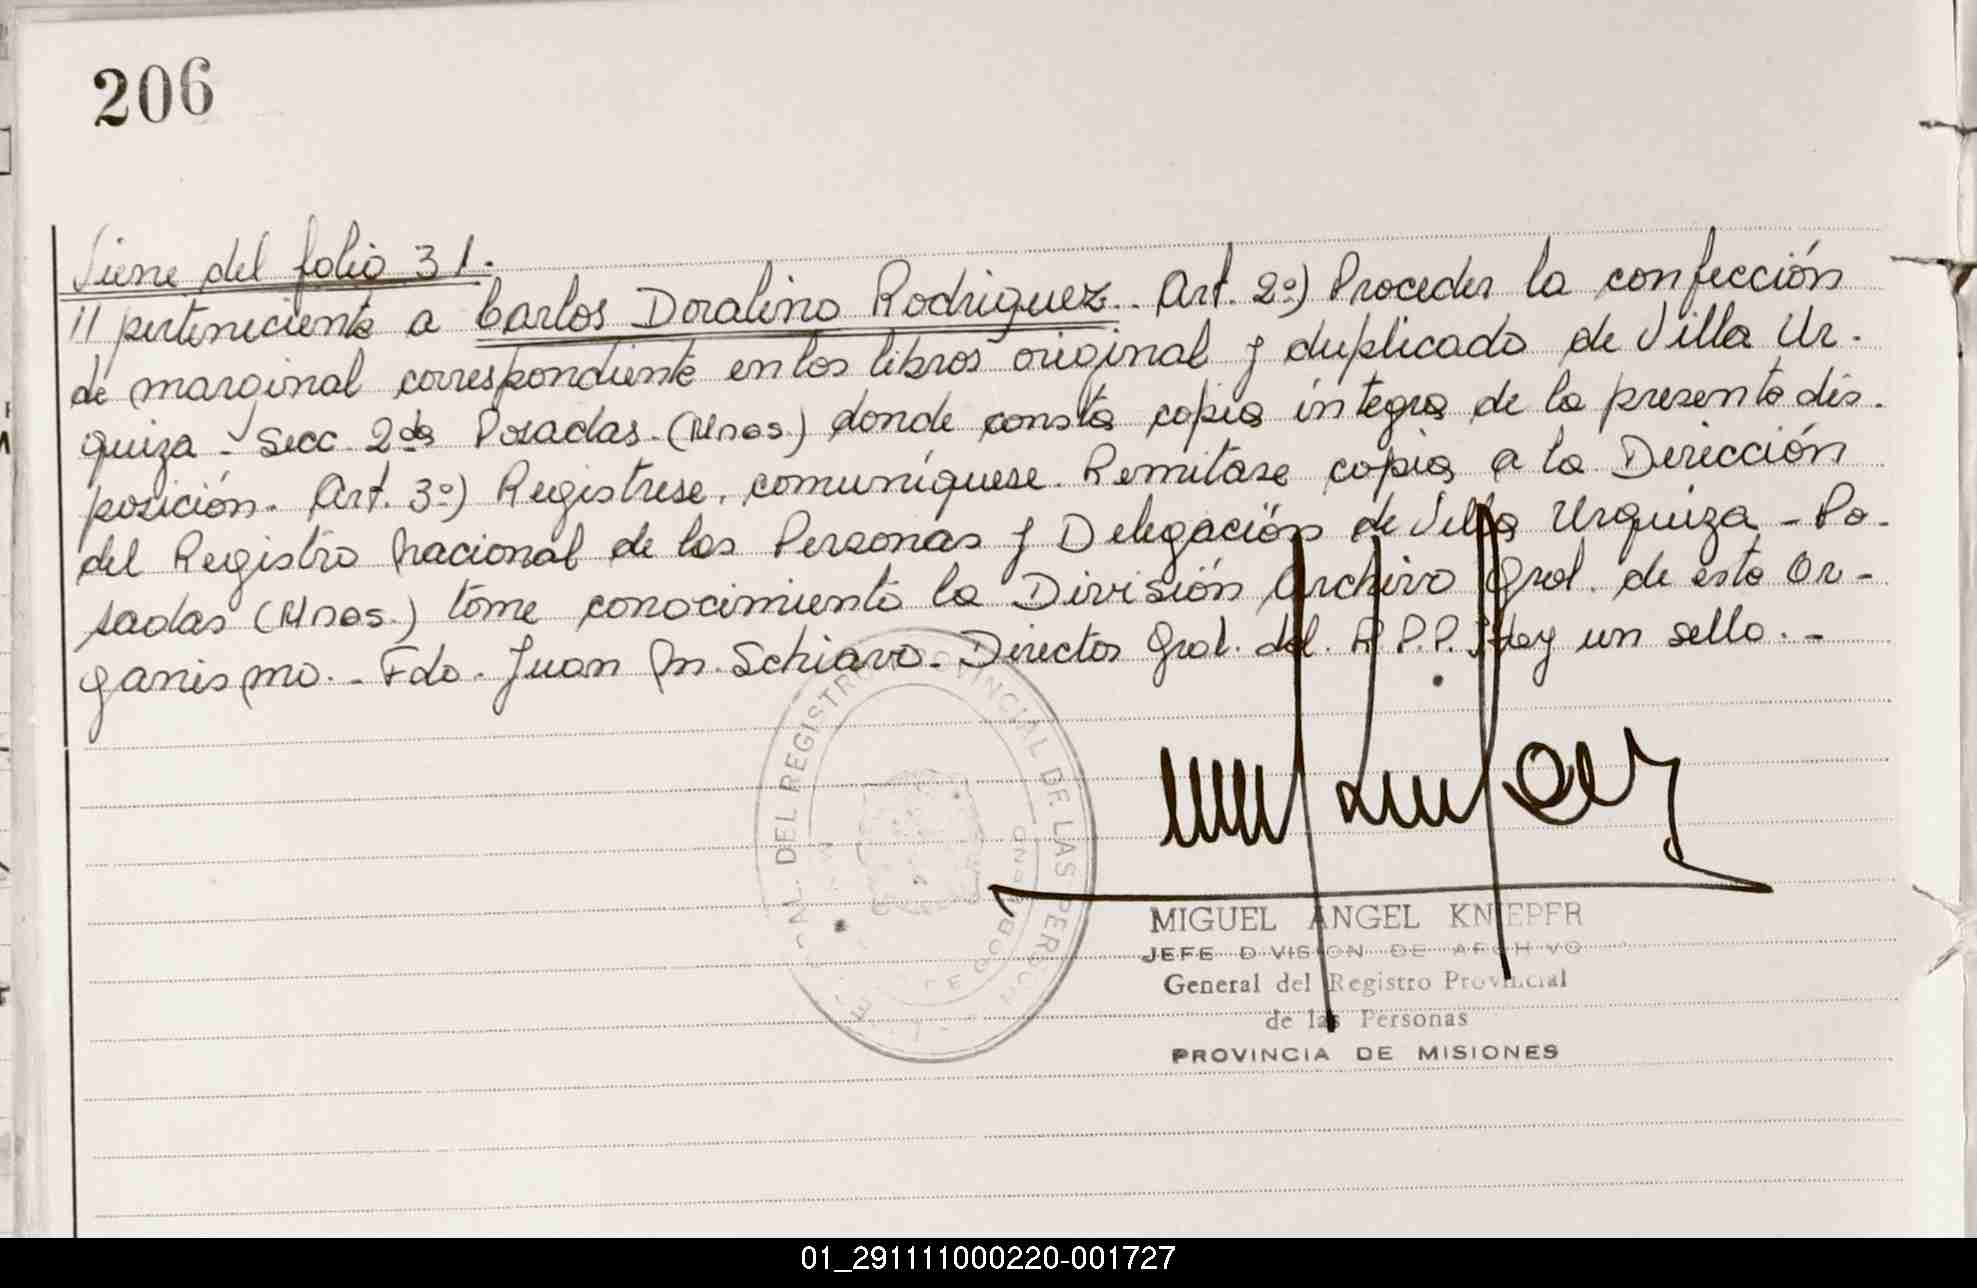 206
Viene del folio 31.
// perteneciente a Carlos Doralino Rodriguez. Art. 2º) Proceder la confección
de marginal correspondiente en los libros original y duplicado de Villa Ur-
quiza - Secc. 2da Posadas - (Mnes.) donde consta copia íntegra de la presente dis-
posición. Art. 3º) Registrese, comuníquese. Remitase copia a la Dirección
del Registro Nacional de las Personas y Delegación de Villa Urquiza - Po-
sadas (Mnes.) tome conocimiento la División Archivo Gral. de este Or-
ganismo. - Fdo. Juan M. Schiavo - Director Gral. del R.P.P. Hay un sello. -
DEL REGISTRO PROVINCIAL DE LAS PERSONAS
MIGUEL ANGEL KNIEPER
JEFE DIVISION DE ARCHIVO
General del Registro Provincial
de las Personas
PROVINCIA DE MISIONES
01_291111000220-001727